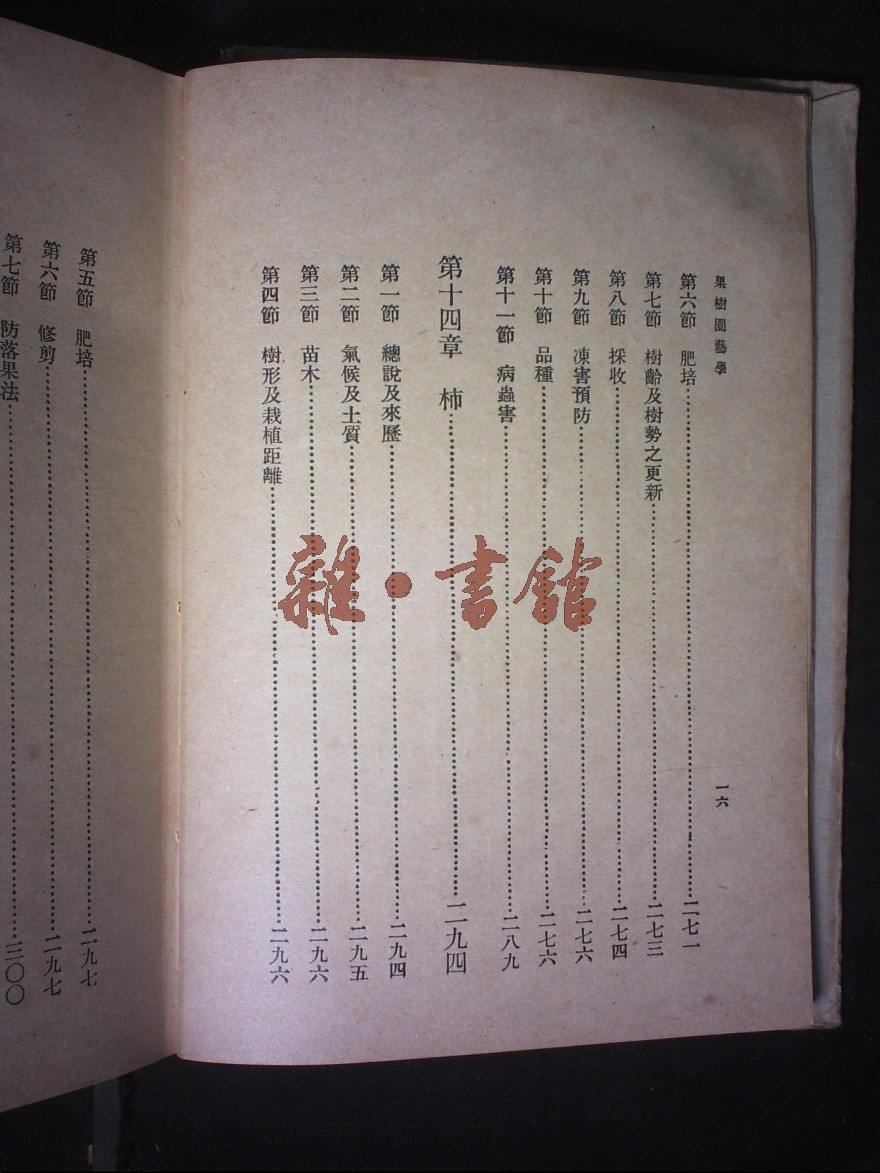 果樹園藝學
一六
第六節 肥培……二七一
第七節 樹齡及樹勢之更新……二七三
第八節 採收……二七四
第九節 凍害預防……二七六
第十節 品種……二七六
第十一節 病蟲害……二八九
第十四章 柿……二九四
第一節 總說及來歷……二九四
第二節 氣候及土質……二九五
第三節 苗木……二九六
第四節 樹形及栽植距離……二九六
第五節 肥培……二九七
第六節 修剪……二九七
第七節 防落果法……三〇〇
雜·書館